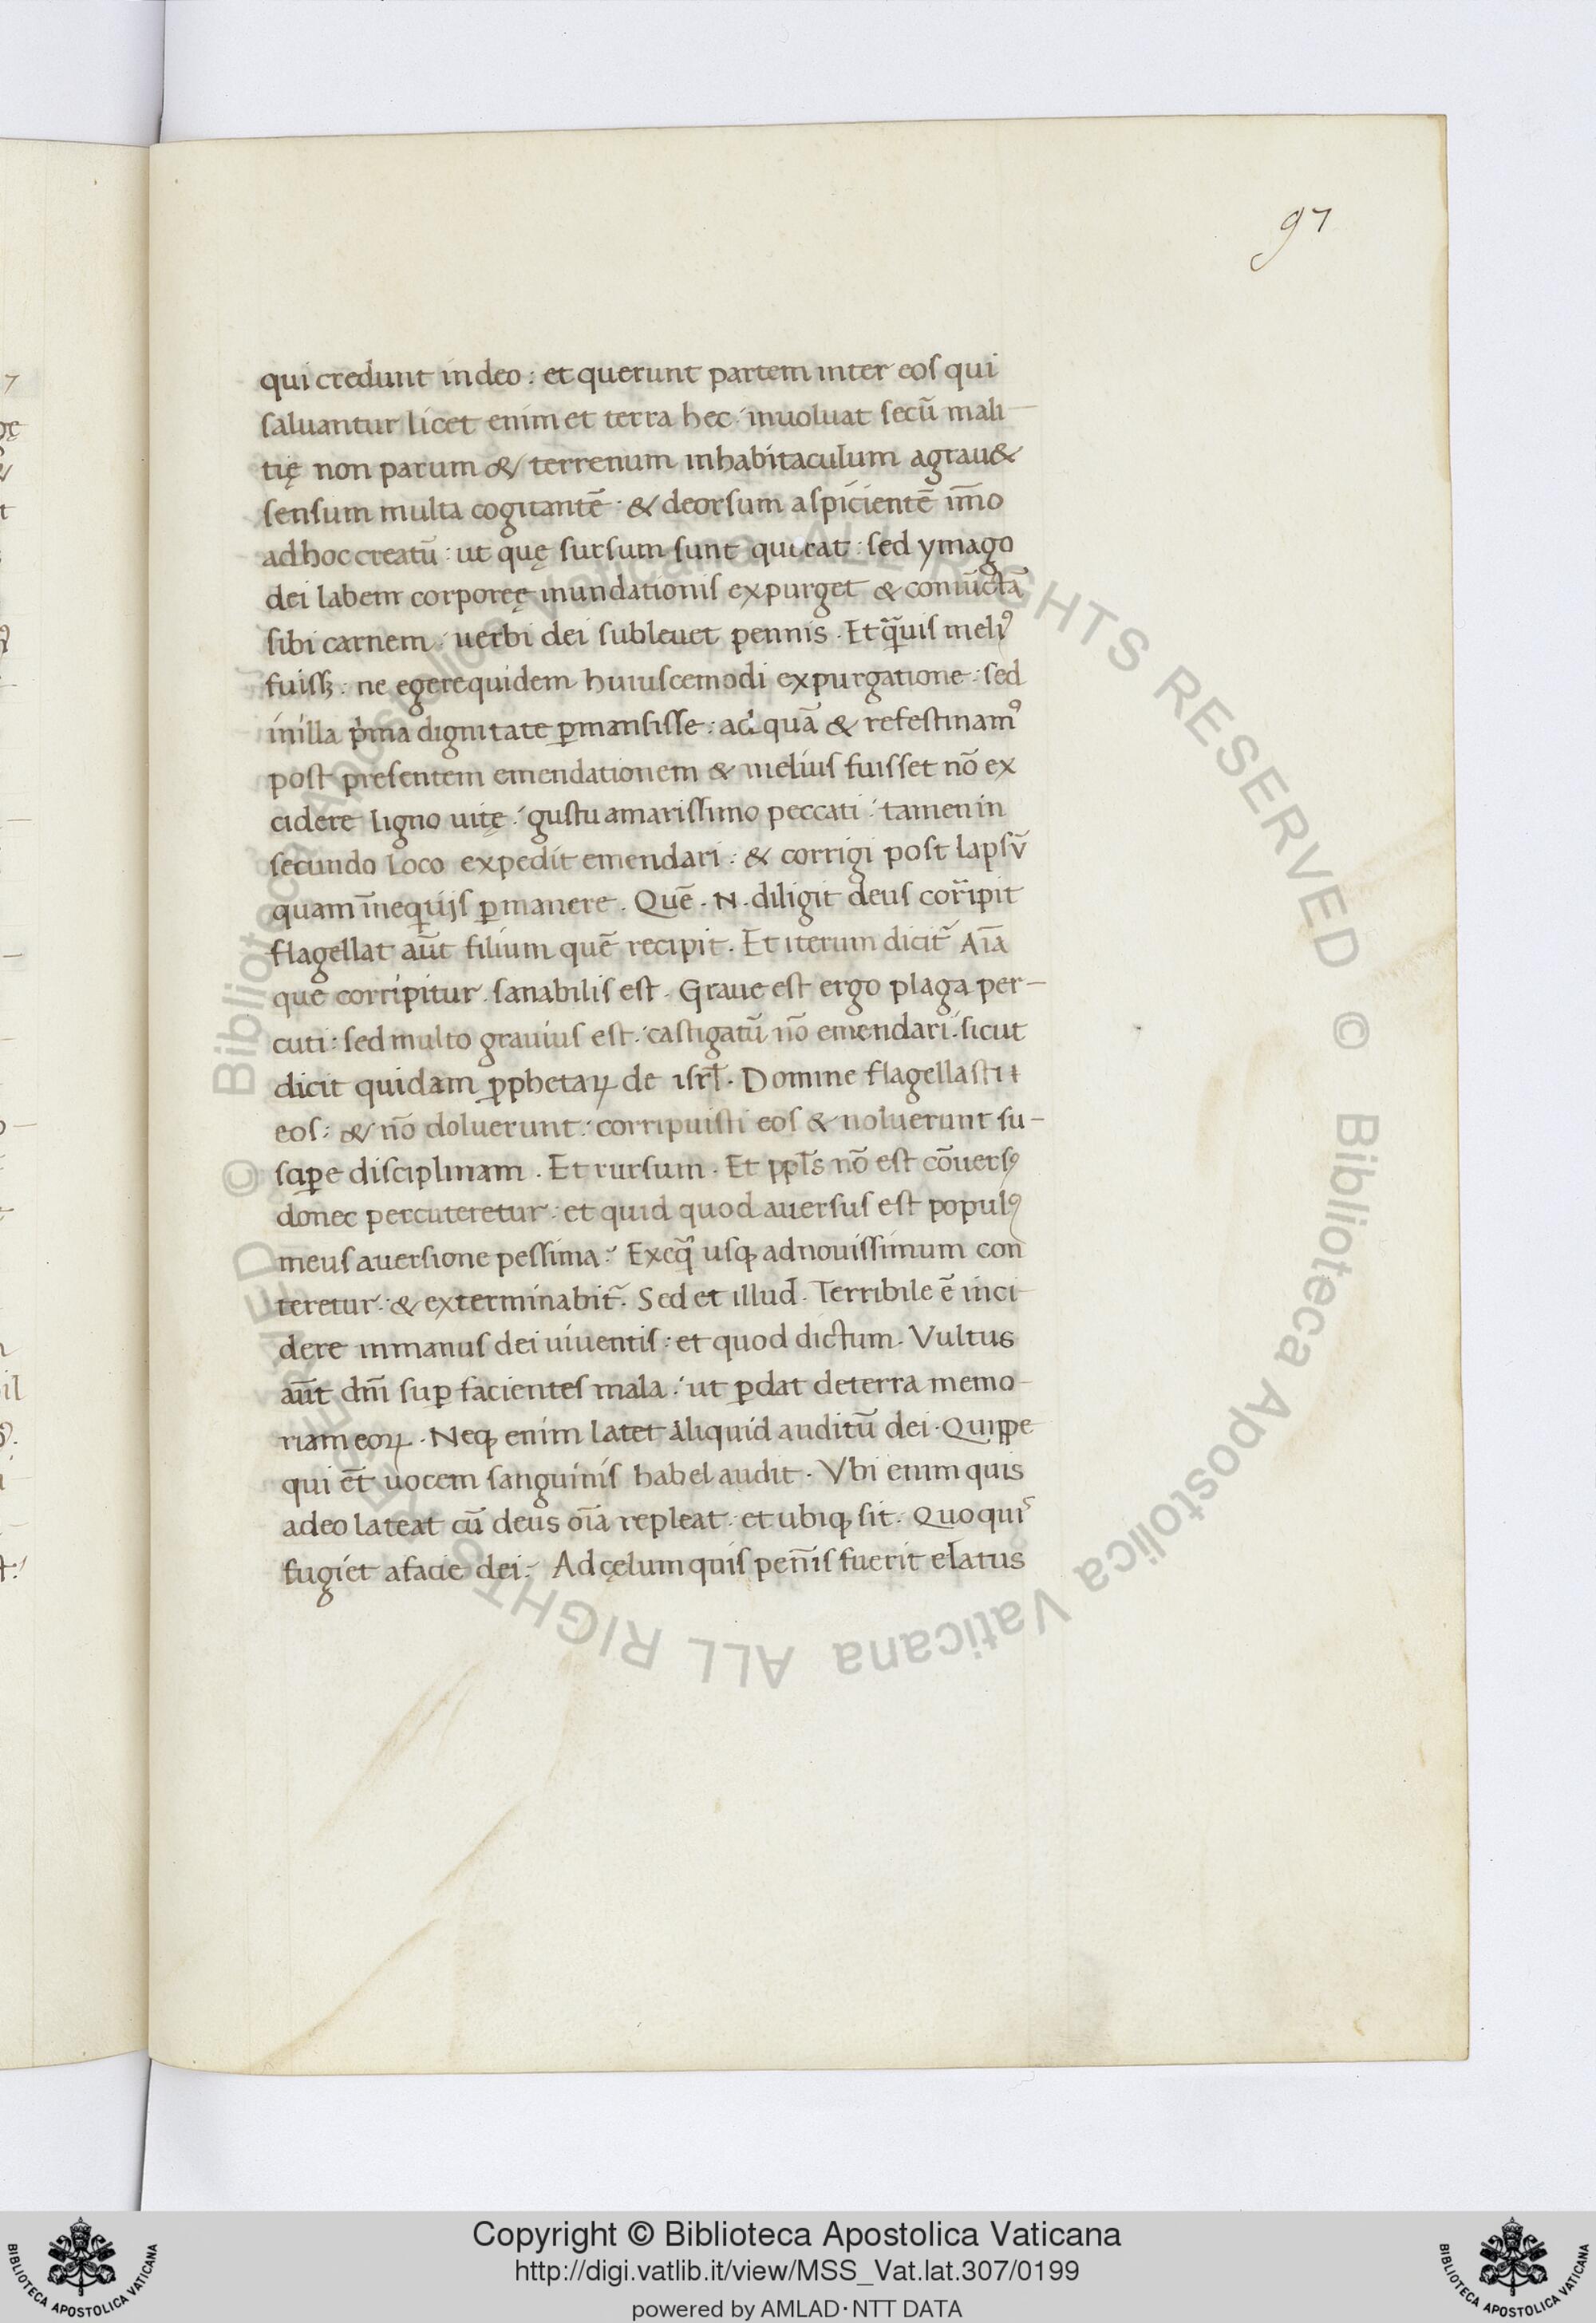 97
qui credunt in deo : et querunt partem inter eos qui
saluantur licet enim et terra hec · inuoluat secū mali
tię non parum & terrenum inhabitaculum agrau&
sensum multa cogitantē · & deorsum aspicientē īmo
ad hoc creatū : ut quę sursum sunt querat : sed ymago
dei labem corporeę inundationis expurget & coniūctā
sibi carnem · uerbi dei subleuet pennis . Et q̄uis meliꝰ
fuisꝫ : ne egere quidem huiuscemodi expurgatione : sed
in illa pͥma dignitate ꝑmansisse : ad quā & refestinamꝰ
post presentem emendationem & melius fuisset nō ex
cidere ligno uitę · gustu amarissimo peccati · tamen in
secundo loco expedit emendari : & corrigi post lapsū
quam ī nequĳs ꝑmanere . Quē . N . diligit deus corripit
flagellat aūt filium quē recipit . Et iterum dicit̄ Aīa
que corripitur . sanabilis est . Graue est ergo plaga per-
cuti : sed multo grauius est · castigatū nō emendari · sicut
dicit quidam ꝓphetaꝝ de isrl̄ . Domine flagellasti
eos : & nō doluerunt : corripuisti eos & noluerunt su-
scipe disciplinam . Et rursum . Et ppl̄s nō est cōuersꝰ
donec percuteretur : et quid quod auersus est populꝰ
meus auersione pessima · Ex eq̄ usqꝫ ad nouissimum con
teretur · & exterminabit̄ . Sed et illud . Terribile ē inci
dere in manus dei uiuentis : et quod dictum . Vultus
aūt dn̄i suꝑ facientes mala · ut ꝑdat de terra memo-
riam eoꝝ . Neqꝫ enim latet aliquid auditū dei . Quippe
qui et̄ uocem sanguinis habel audit . Vbi enim quis
adeo lateat cū deus oīa repleat · et ubiqꝫ sit . Quo quis
fugiet a facie dei · Ad cęlum quis pen̄is fuerit elatus
© Biblioteca Apostolica Vaticana ALL RIGHTS RESERVED © Biblioteca Apostolica Vaticana ALL RIGHTS RESERVED
Copyright © Biblioteca Apostolica Vaticana
http://digi.vatlib.it/view/MSS_Vat.lat.307/0199
powered by AMLAD·NTT DATA
BIBLIOTECA APOSTOLICA VATICANA
BIBLIOTECA APOSTOLICA VATICANA